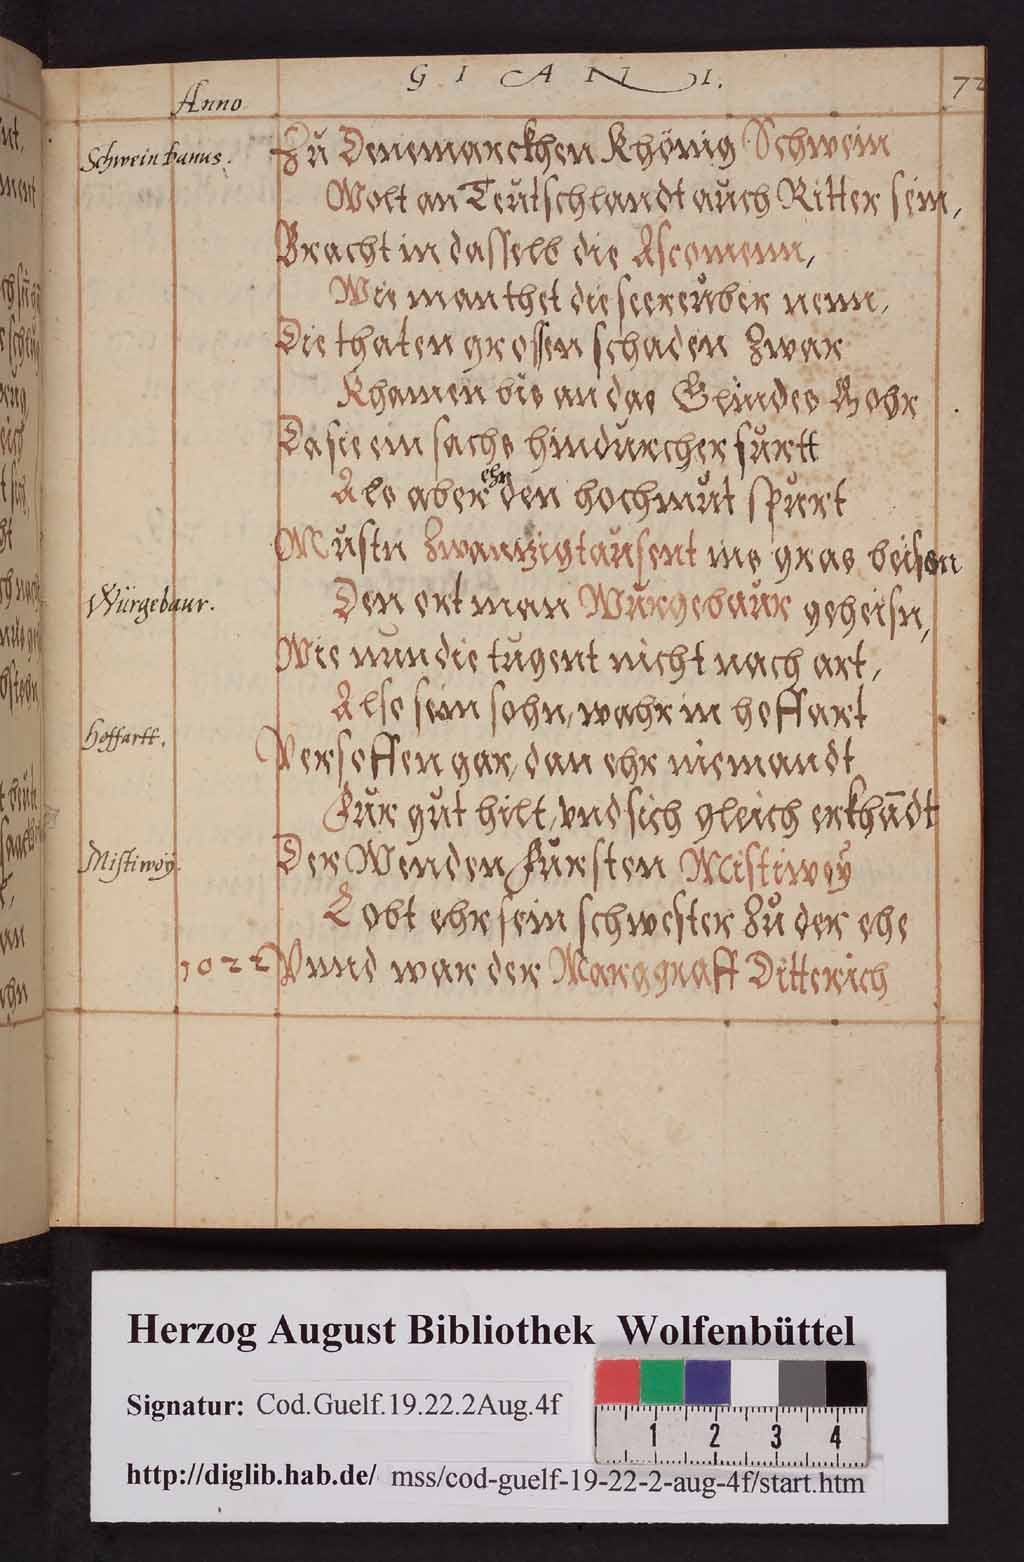 GIANI.
72
Anno
Schwein Banus.
Zu Denemarckhen Khönig Schwein
Wolt an Teutschlandt auch Ritter sein,
Bracht in dasselb die Ascomenn,
Wie man thet die seereuber nenn,
Die thaten grossen schaden zwar
Khamen bis an das Glindes Mohr
Da sie ein sachs hindurcher fürtt
Als aber ehr den hochmut spürt
Mustn zwantzigtausent ins gras beissn
Würgebaur.
Den ort man Würgebaur geheisn,
Wie nun die tugent nicht nach art,
Also sein sohn, wahr in hoffart
Hoffartt.
Versoffen gar, dan ehr niemandt
Für gut hilt, vnd sich gleich erkhādt
Mistiwoÿ.
Der Wenden Fürsten Mistiwoÿ
Lobt ehr sein schwester zu der ehe
1022
Vnnd war der Marggraff Ditterich
Herzog August Bibliothek Wolfenbüttel
Signatur: Cod.Guelf.19.22.2Aug.4f
1 2 3 4
http://diglib.hab.de/ mss/cod-guelf-19-22-2-aug-4f/start.htm